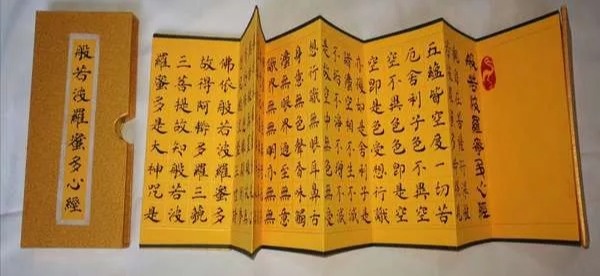 般若波羅蜜多心經
般若波羅蜜多心經
觀自在菩薩行深般
五蘊皆空度一切苦
厄舍利子色不異空
空不異色色即是空
空即是色受想行識
亦復如是舍利子是
諸法空相不生不滅
不垢不淨不增不減
是故空中無色無受
想行識無眼耳鼻舌
身意無色聲香味觸
無眼界乃至無意
識界無無明亦無無
佛依般若波羅蜜多
故得阿耨多羅三藐
三菩提故知般若波
羅蜜多是大神咒是